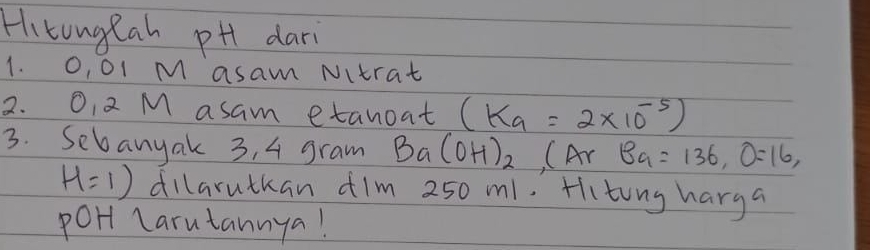 Hitunglah pH dari
1. 0,01 M asam Nitrat
2. 0,2 M asam etanoat (Ka = 2×10⁻⁵)
3. Sebanyak 3,4 gram Ba(OH)₂ (Ar Ba = 136, O=16,
H=1) dilarutkan dlm 250 ml. Hitung harga
pOH larutannya!